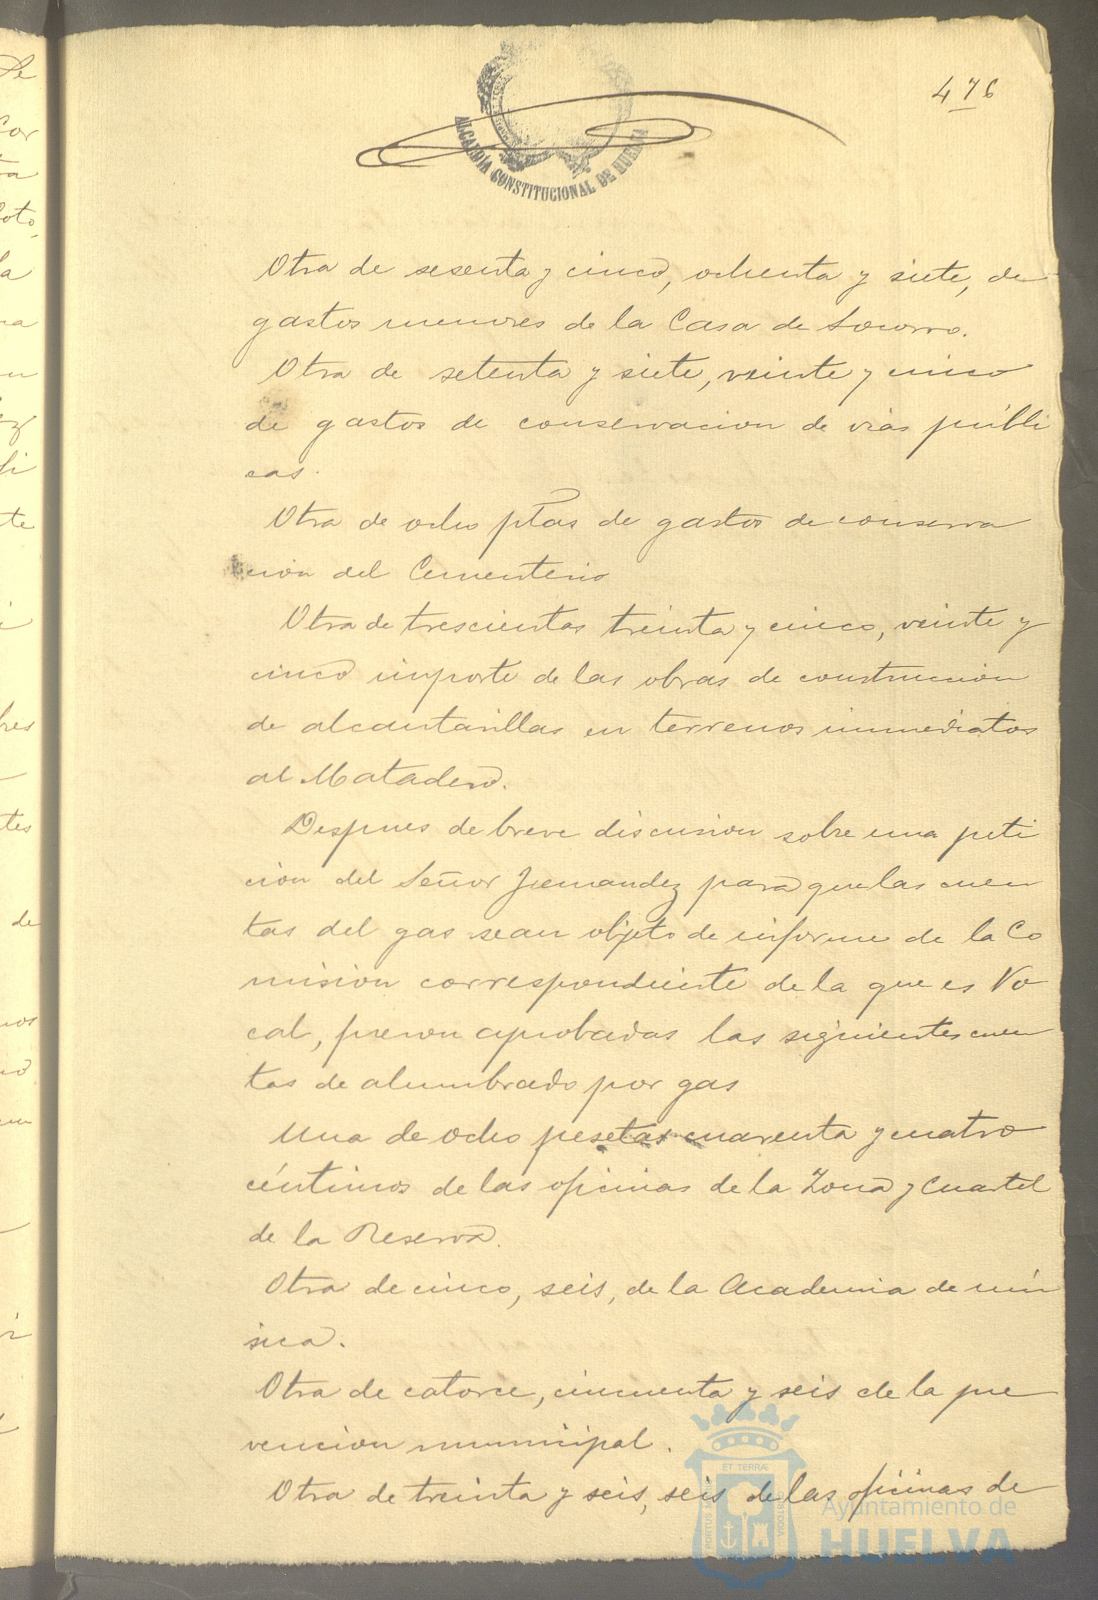 476
ALCALDÍA CONSTITUCIONAL DE HUELVA
Otra de sesenta y cinco, ochenta y siete, de
gastos menores de la Casa de Socorro.
Otra de setenta y siete, veinte y cinco
de gastos de conservacion de vias públi
cas.
Otra de ocho ptas de gastos de conserva
cion del Cementerio
Otra de trescientas treinta y cinco, veinte y
cinco importe de las obras de construccion
de alcantarillas en terrenos inmediatos
al Matadero.
Despues de breve discusion sobre una peti
cion del Señor Jernandez para que las cuen
tas del gas sean objeto de informe de la Co
mision correspondiente de la que es Vo
cal, fueron aprobadas las siguientes cuen
tas de alumbrado por gas
Una de ocho pesetas cuarenta y cuatro
céntimos de las oficinas de la Zona y Cuartel
de la Reserva.
Otra de cinco, seis, de la Academia de mú
sica.
Otra de catorce, cincuenta y seis de la pre
vencion municipal.
Otra de treinta y seis, seis de las oficinas de
ET TERRÆ
PORTUS
CUSTODIA
Ayuntamiento de
HUELVA